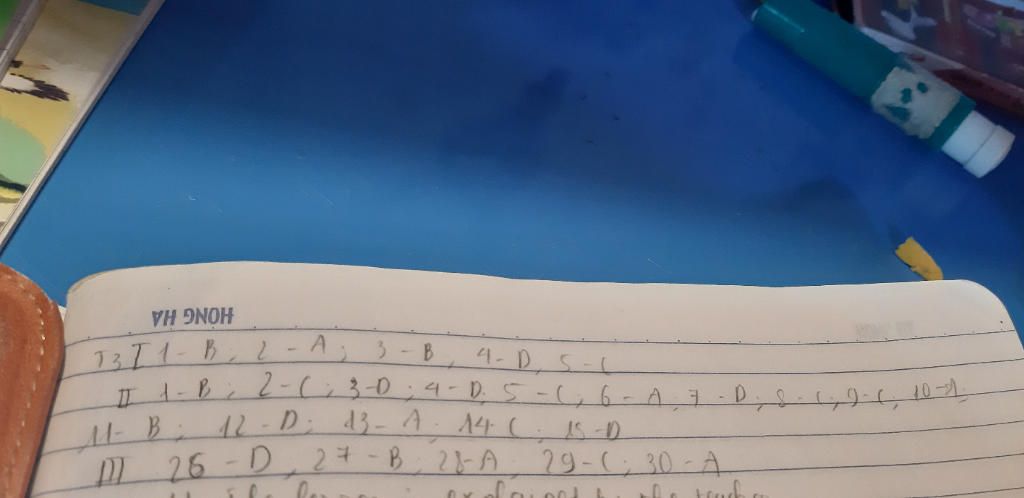 HONG HA
T3 I 1-B; 2-A; 3-B, 4-D, 5-C
II 1-B; 2-C; 3-D; 4-D. 5-C; 6-A, 7-D; 8-C; 9-C, 10-A;
11-B; 12-D; 13-A; 14-C; 15-D
III 26-D, 27-B; 28-A; 29-C; 30-A
explained by the teacher